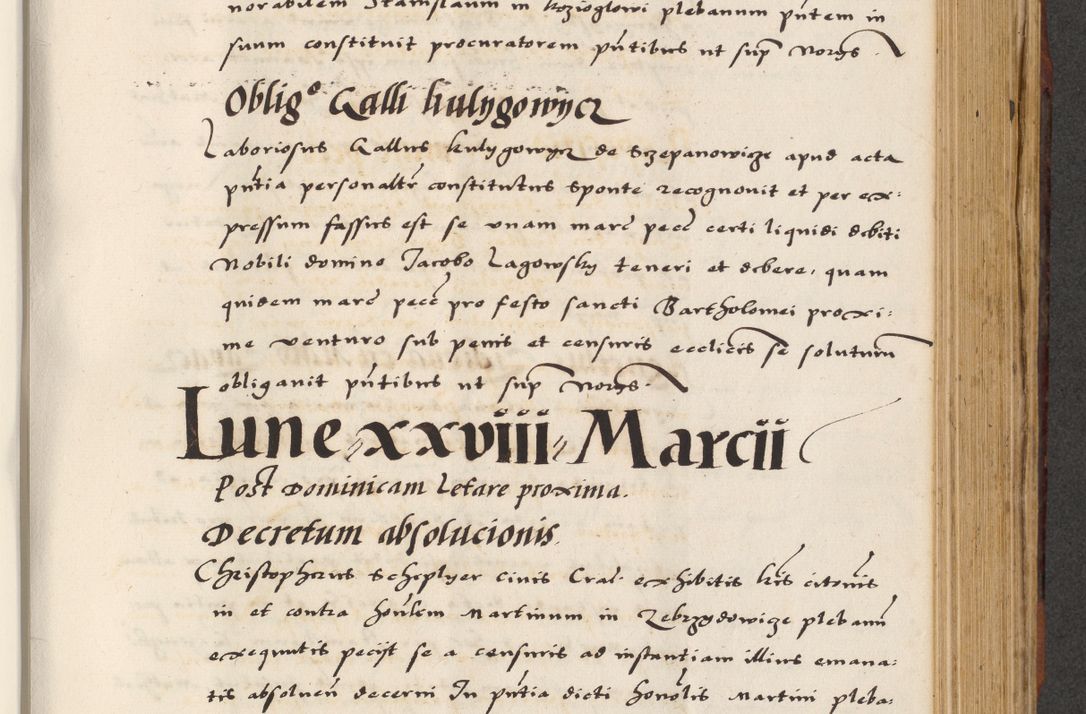 norabilem Stanislaum in Kozioglowi plebanum pñtem in
suum constituit procuratorem pñtibus ut sup Norys
Obligº Galli kulygowycz
Laboriosus Gallus kulygowycz de Sczepanowicze apud acta
pñtia personalr̃ constitutus sponte recognovit et per ex:
pressum fassus est se unam marc̃ pecc̃ certi liquidi debiti
Nobili domino Jacobo Lagowsky teneri et debere, quam
quidem marc̃ pecc̃ pro festo sancti Bartholomei proxi:
me venturo sub penis et censuris ecclicis se soluturum
obligavit pñtibus ut sup Norys.
Lune xxviiii Marcii
Post Dominicam Letare proxima.
Decretum absolucionis.
Christopherus Scheplyer civis Crac. exhibitis lrĩs citoñis
in et contra honl̃em Martinum in Zebrzydowicze plebanũ
exequutis pecijt se a censuris ad instantiam illius emana:
tis absolueñ decerni In pñtia dicti honol̃is Martini pleba: